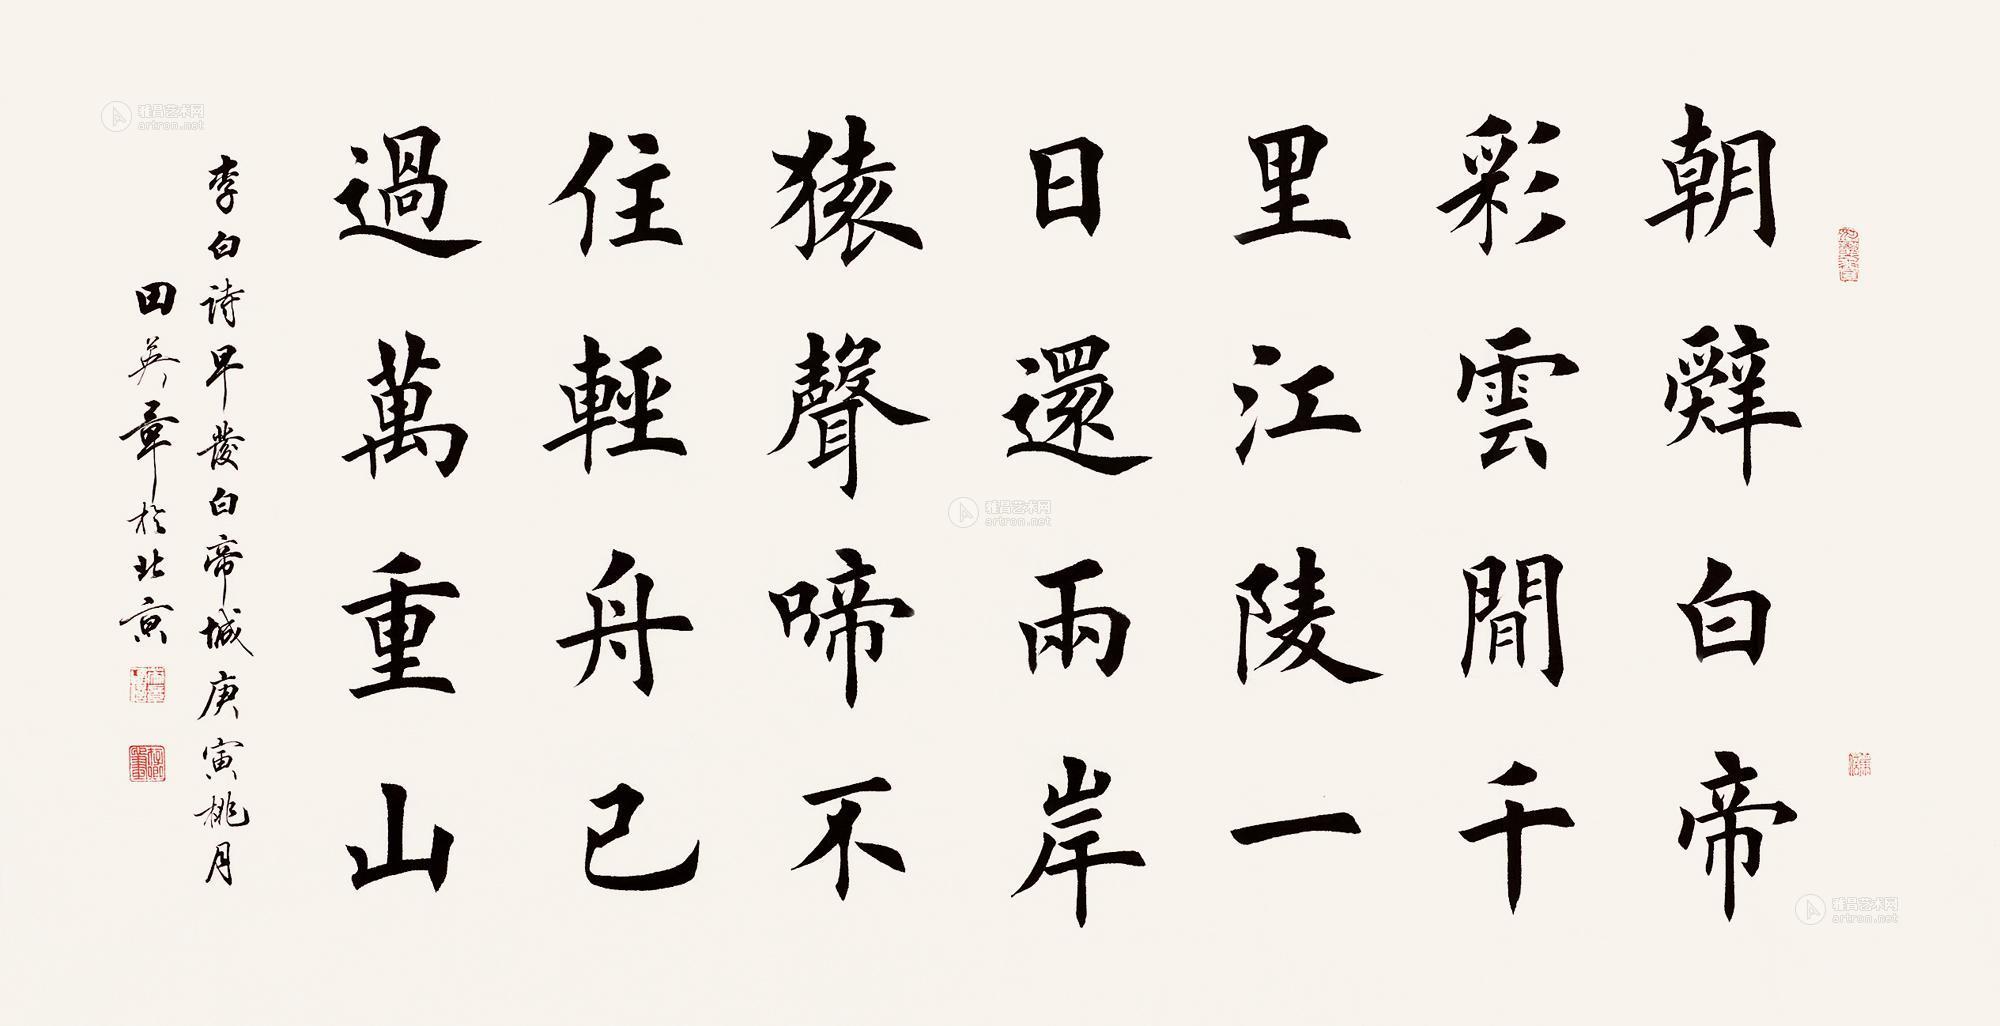 朝辤白帝
彩雲間千
里江陵一
日還兩岸
猿聲啼不
住輕舟已
過萬重山
李白诗早發白帝城庚寅桃月
田英章於北京
雅昌艺术网
artron.net
雅昌艺术网
artron.net
雅昌艺术网
artron.net